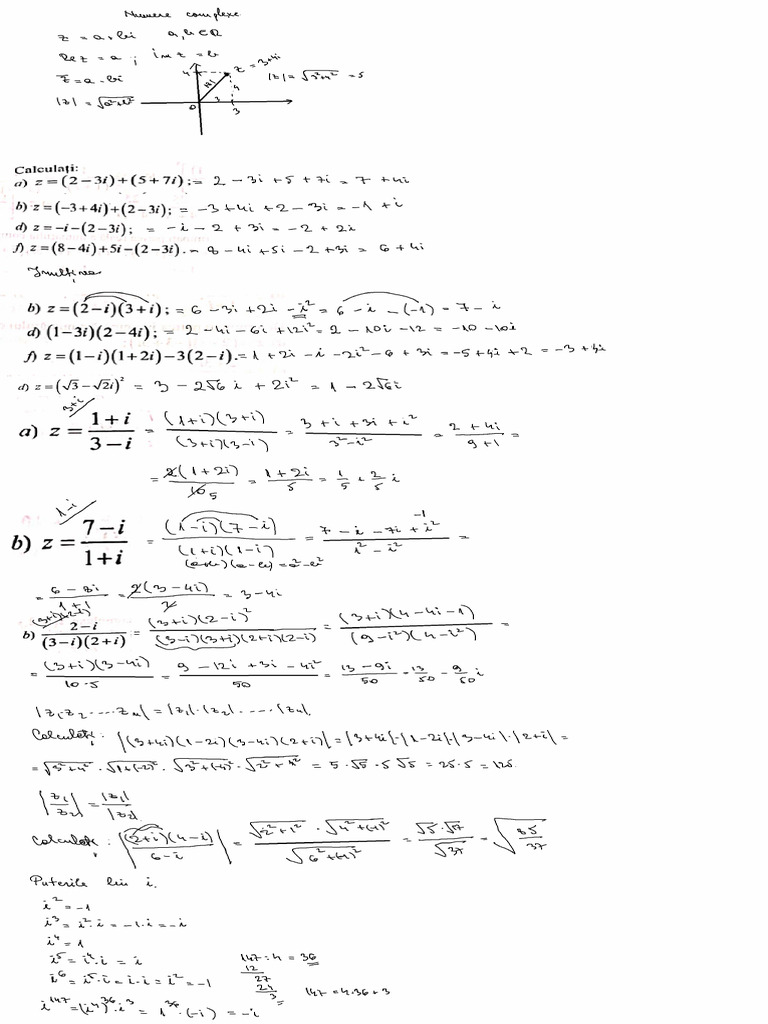 Numere complexe
z = a + bi   a, b ∈ ℝ
Re z = a ; im z = b
z̄ = a - bi
4   z = 3+4i   |z| = √(3²+4²) = 5
|z| = √(a²+b²)
|z|   4   3   0   3
Calculați:
a) z = (2−3i)+(5+7i) ; = 2 − 3i + 5 + 7i = 7 + 4i
b) z = (−3+4i)+(2−3i); = −3 + 4i + 2 − 3i = −1 + i
d) z = −i−(2−3i); = −i − 2 + 3i = −2 + 2i
f) z = (8−4i)+5i−(2−3i). = 8 − 4i + 5i − 2 + 3i = 6 + 4i
Înmulțirea
b) z = (2−i)(3+i); = 6 − 3i + 2i − i² = 6 − i − (−1) = 7 − i
d) (1−3i)(2−4i); = 2 − 4i − 6i + 12i² = 2 − 10i − 12 = −10 − 10i
f) z = (1−i)(1+2i)−3(2−i). = 1 + 2i − i − 2i² − 6 + 3i = −5 + 4i + 2 = −3 + 4i
d) z = (√3−√2i)² = 3 − 2√6 i + 2i² = 1 − 2√6i
3+i)
a) z = (1+i)/(3−i) = (1+i)(3+i)/(3+i)(3−i) = (3 + i + 3i + i²)/(3² − i²) = (2 + 4i)/(9+1) =
= 2(1+2i)/10 5 = (1+2i)/5 = 1/5 + 2/5 i
1−i)
b) z = (7−i)/(1+i) = (1−i)(7−i)/(1+i)(1−i) = (7 − i − 7i + i²)/(1² − i²) =
−1
(a+b)(a−b) = a²−b²
= (6 − 8i)/(1+1) = 2(3−4i)/2 = 3 − 4i
(3+i)(2−i)
b) (2−i)/(3−i)(2+i) = (3+i)(2−i)²/(3−i)(3+i)(2+i)(2−i) = (3+i)(4−4i−1)/(9−i²)(4−i²) =
= (3+i)(3−4i)/10·5 = (9 − 12i + 3i − 4i²)/50 = (13 − 9i)/50 = 13/50 − 9/50 i
|z₁z₂ ..... zₙ| = |z₁|·|z₂| ..... |zₙ|.
Calculați: |(3+4i)(1−2i)(3−4i)(2+i)| = |3+4i|·|1−2i|·|3−4i|·|2+i| =
= √(3²+4²) · √(1+(−2)²) · √(3²+(−4)²) · √(2²+1²) = 5·√5·5√5 = 25·5 = 125.
|z₁/z₂| = |z₁|/|z₂|
Calculați: |(2+i)(4−i)/(6−i)| = √(2²+1²) · √(4²+(−1)²)/√(6²+(−1)²) = √5·√17/√37 = √(85/37)
Puterile lui i.
i² = −1
i³ = i²·i = −1·i = −i
i⁴ = 1
i⁵ = i⁴·i = i   147 : 4 = 36
i⁶ = i⁵·i = i·i = i² = −1   12
27
24
3   147 = 4·36 + 3
i¹⁴⁷ = (i⁴)³⁶·i³ = 1³⁶·(−i) = −i